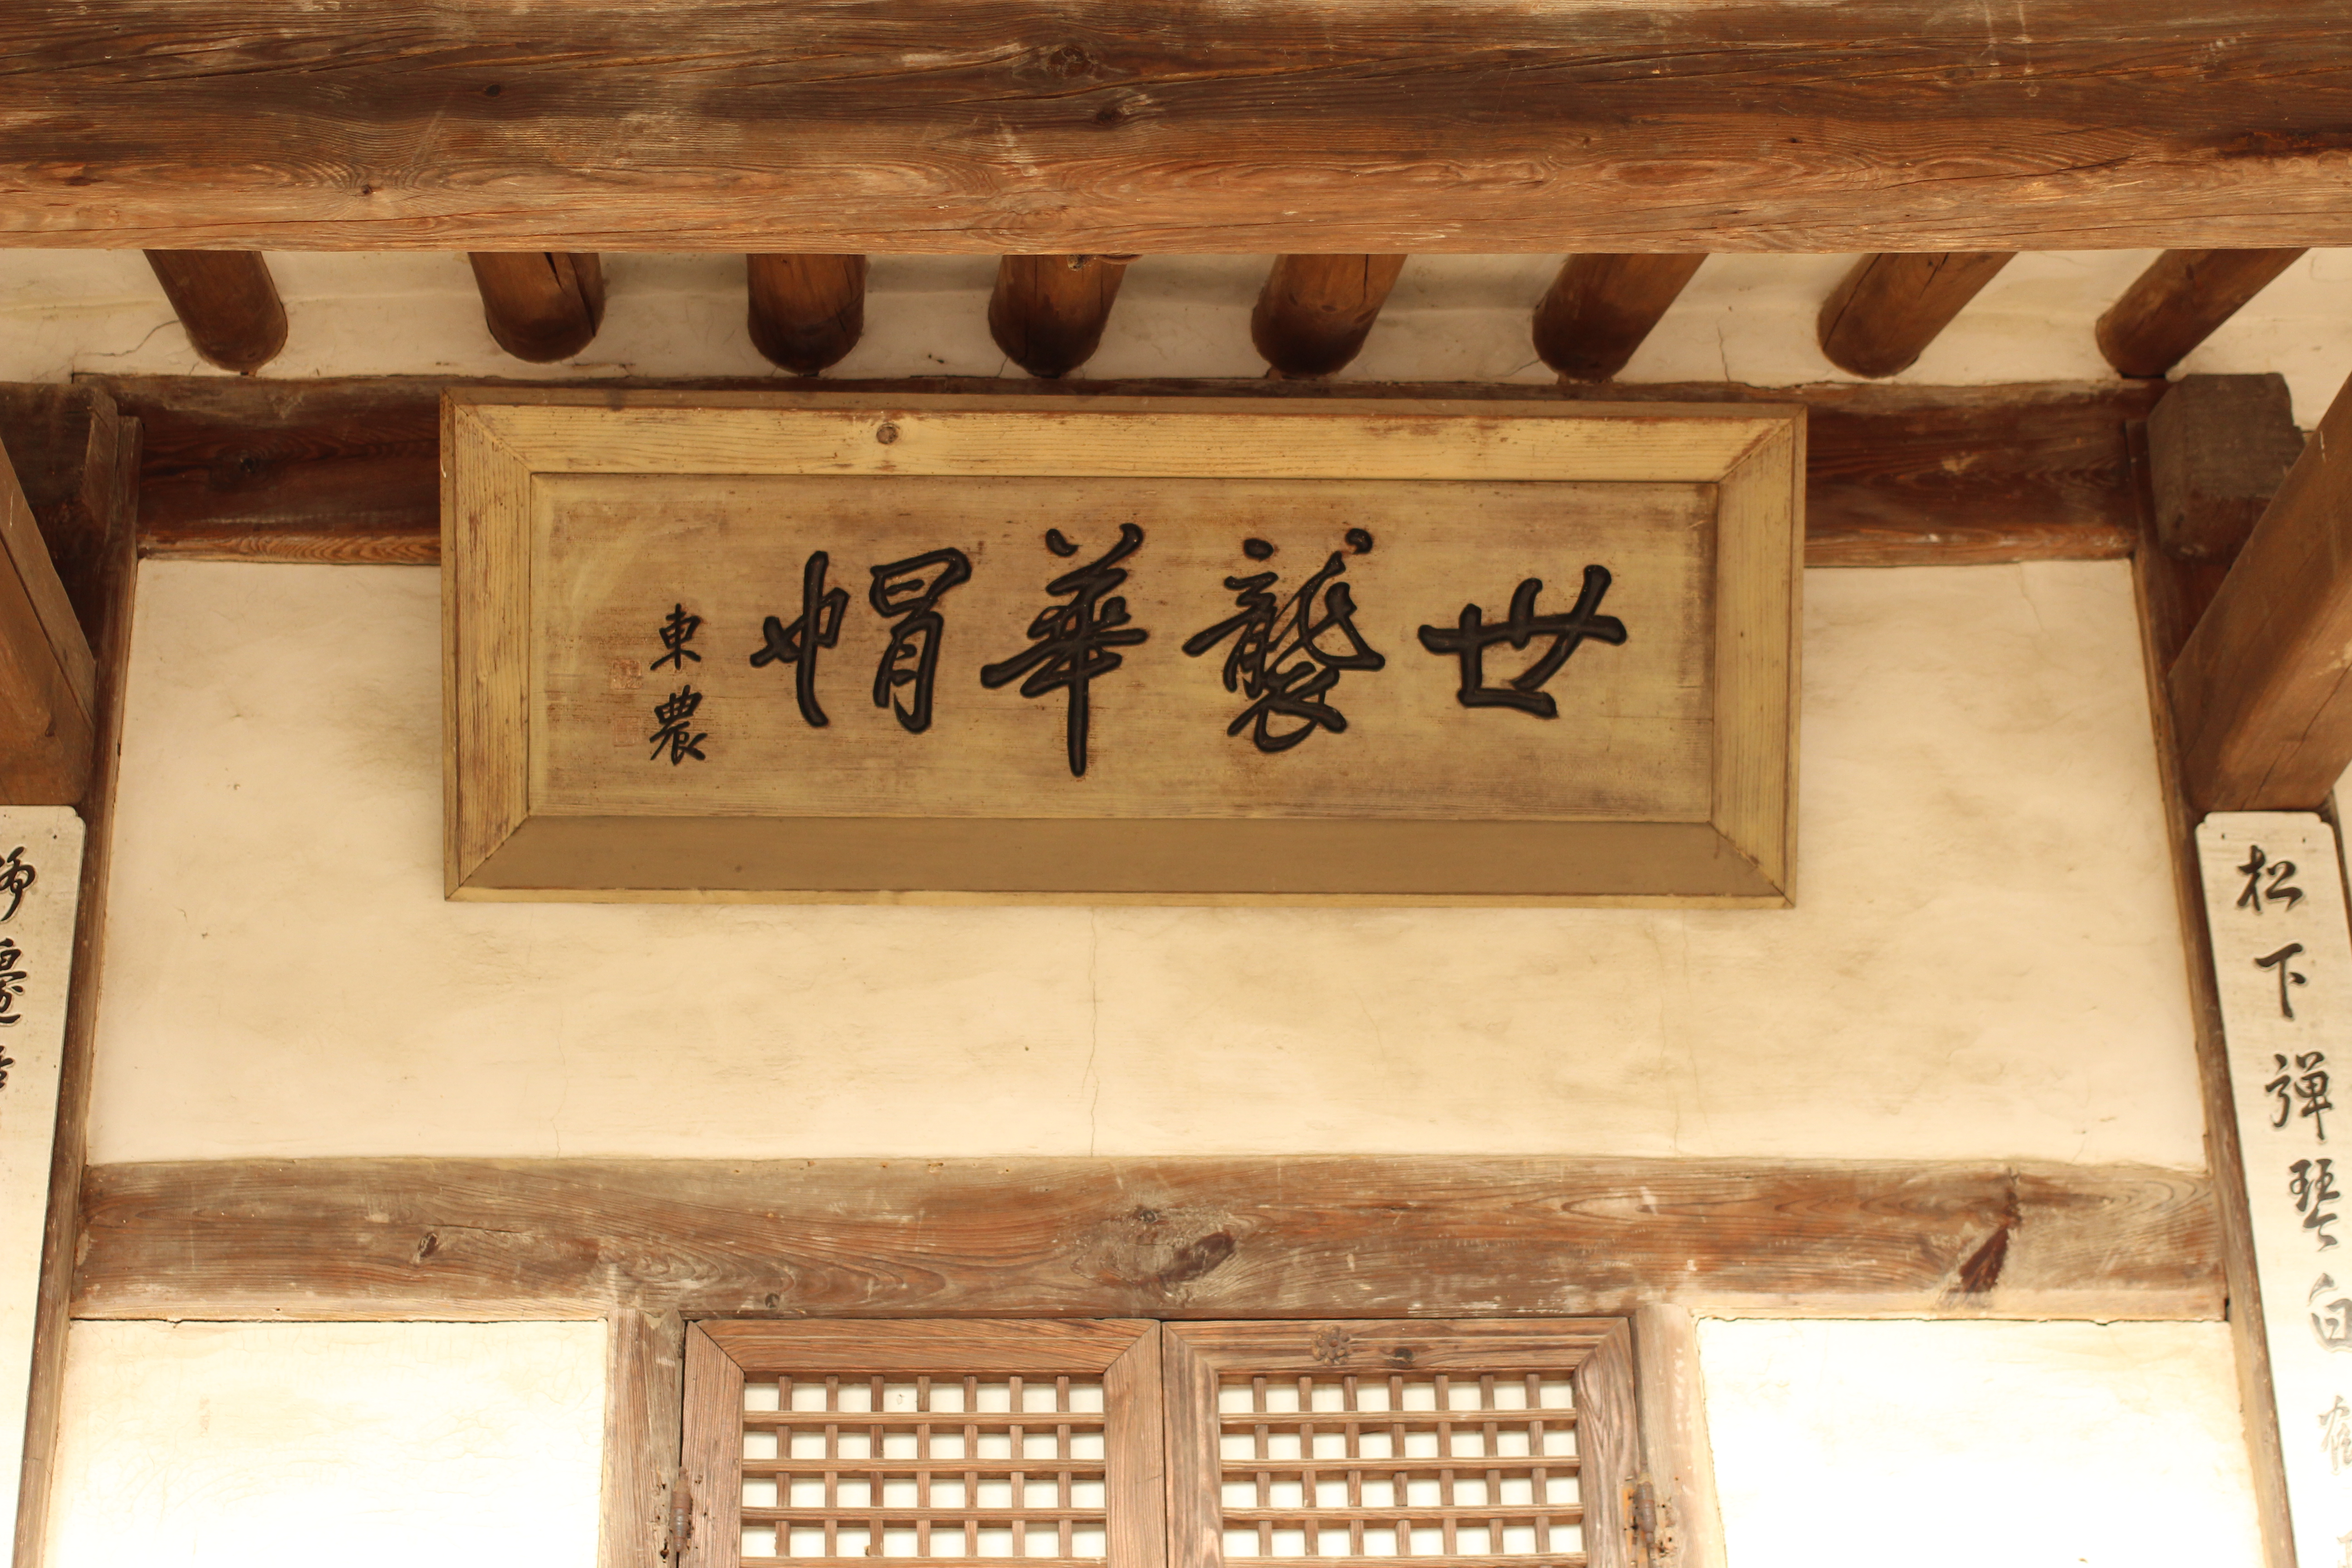 世襲華帽
東農
松下彈琴白鶴
邊